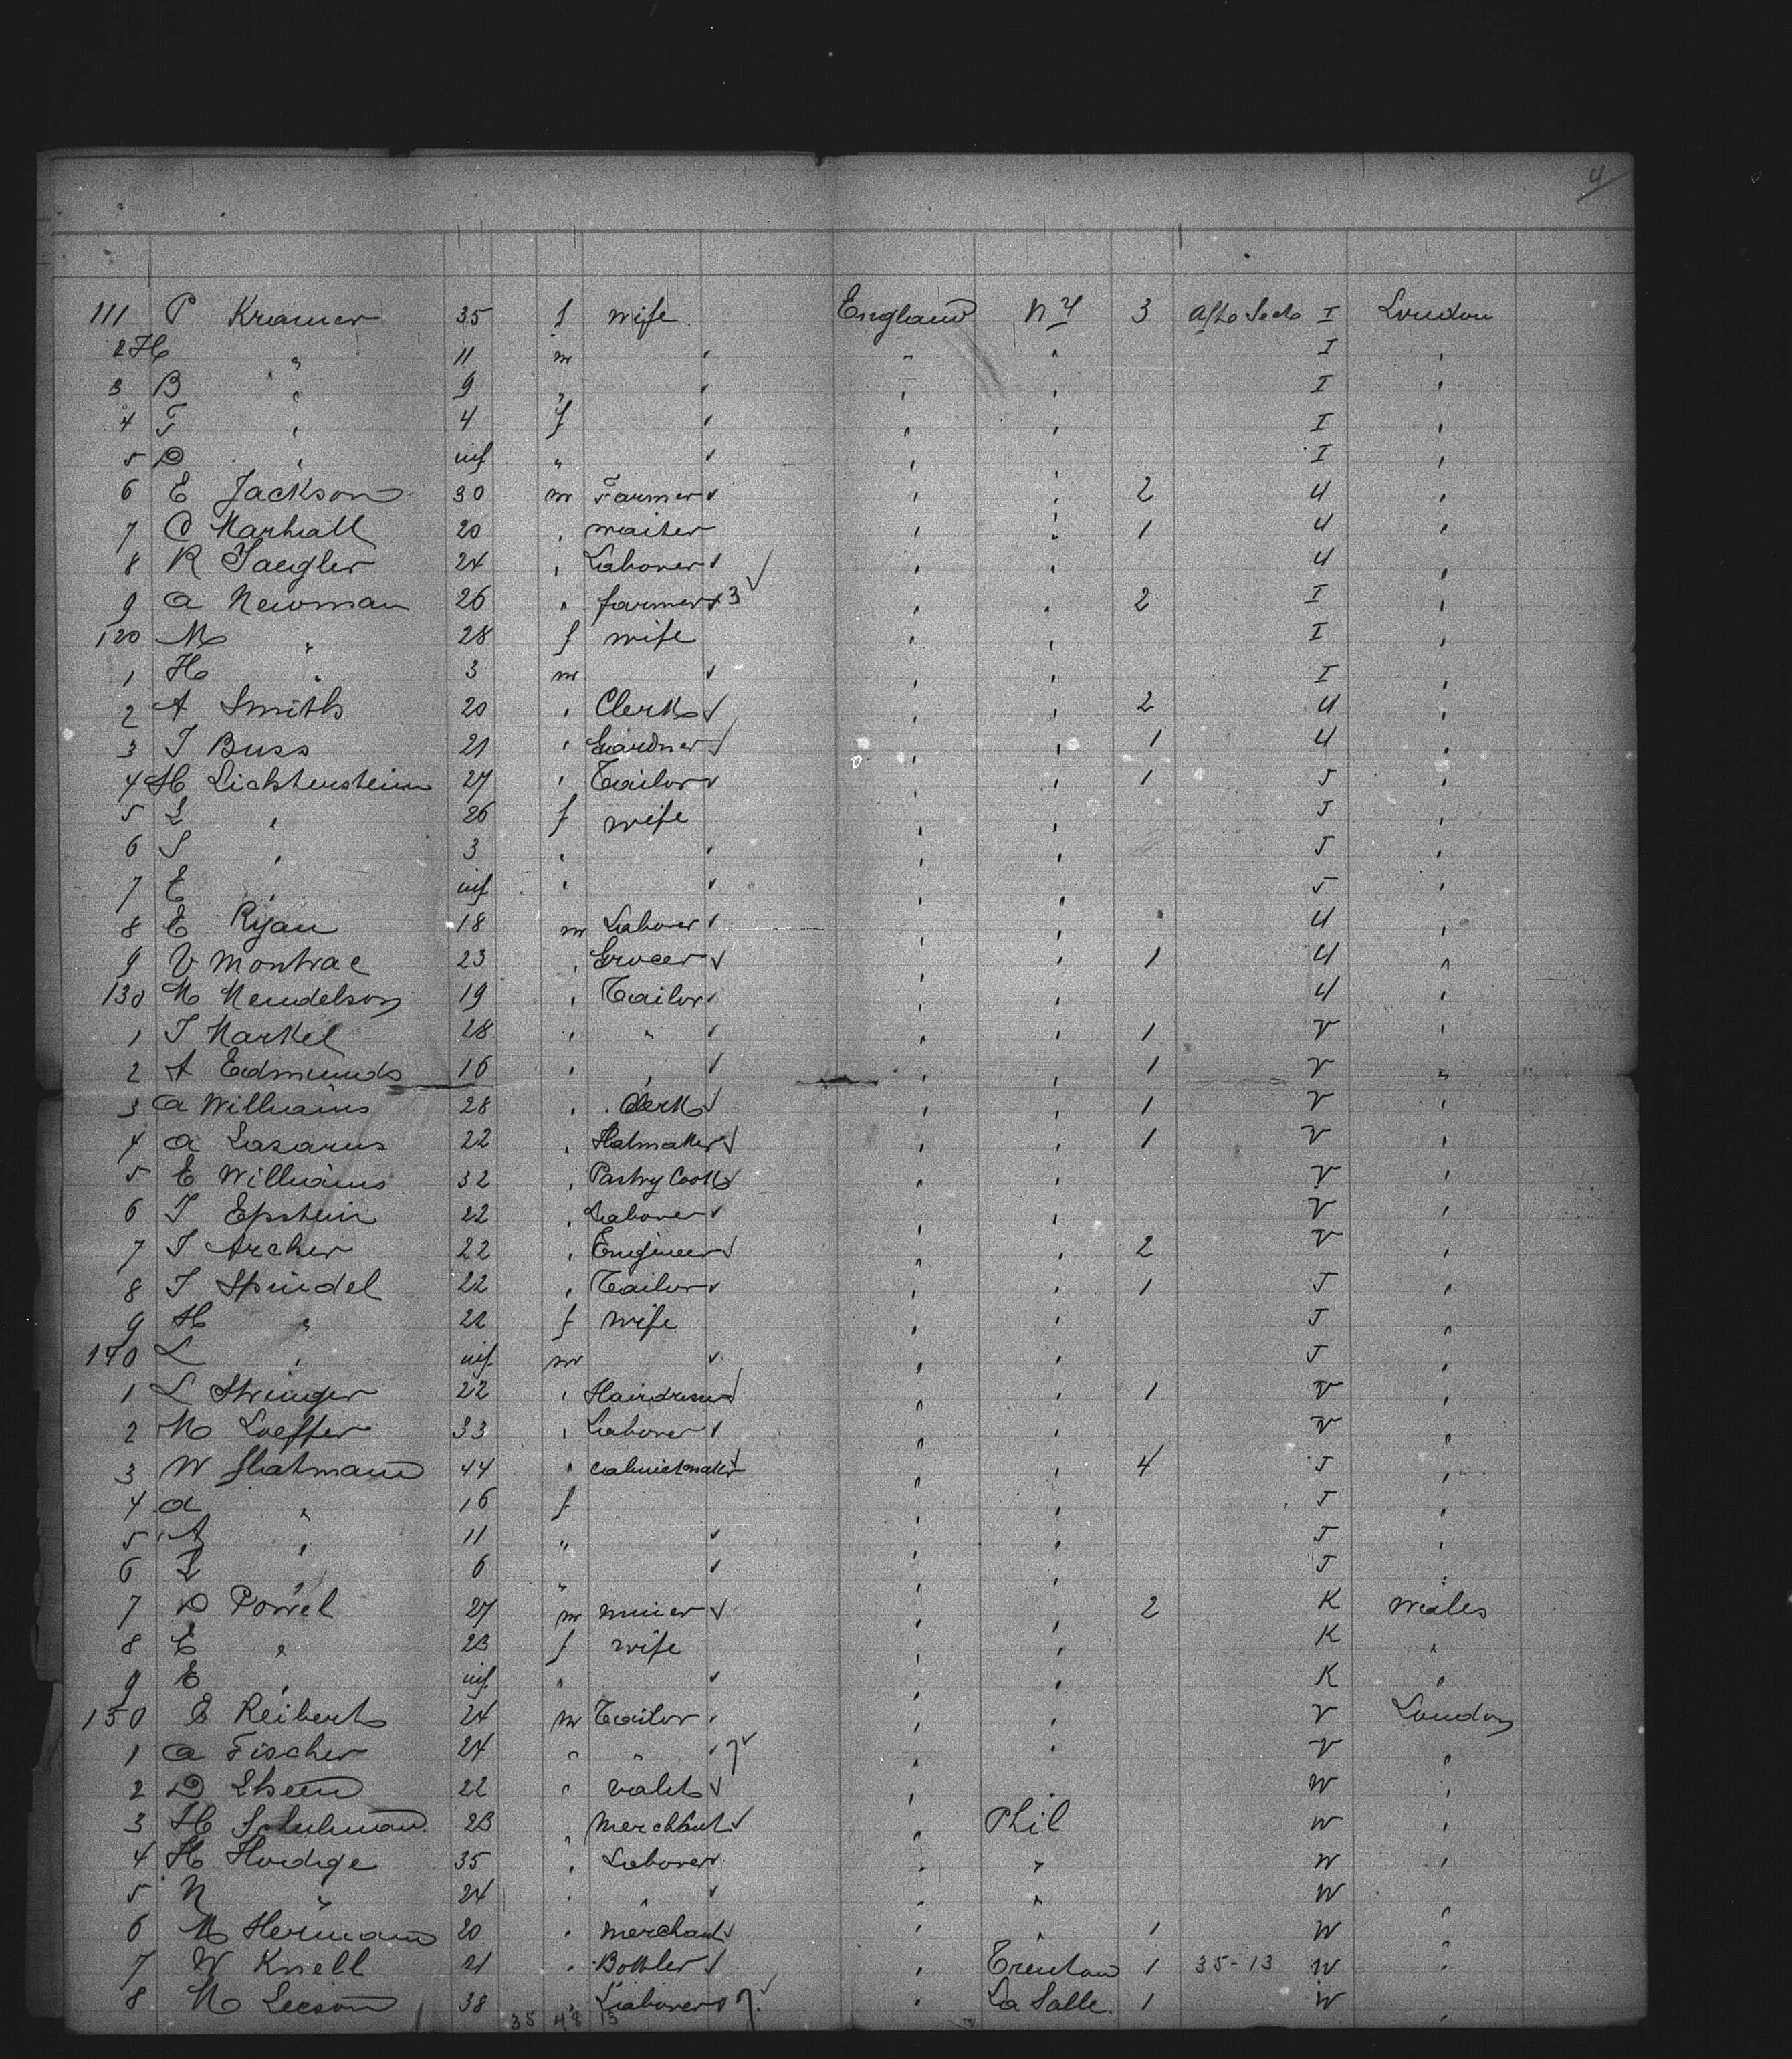 4
111 P Kramer 35 f wife England N Y 3 Aft Deck I London
2 H " 11 m ' " ' I '
3 B " 9 " ' ' ' I '
4 F ' 4 f ' ' ' I '
5 D ' inf " ' ' ' I '
6 E Jackson 30 m Farmer ' ' 2 U '
7 C Marhall 20 ' waiter ' " 1 U '
8 R 24 ' Laborer ' ' U '
9 A Newman 26 ' farmer 3 ✓ ' ' 2 I '
120 M " 28 f wife ' ' I '
1 H " 3 m ' ' ' I '
2 A Smith 20 ' Clerk ✓ ' ' 2 U '
3 J Buss 21 ' Gardner ✓ ' ' 1 U '
4 H Lichtenstein 27 ' Tailor ' ' 1 J '
5 L ' 26 f wife ' ' J '
6 S ' 3 ' ' ' ' J '
7 E ' inf ' ' ' ' J '
8 E Ryan 18 m Laborer ' ' U '
9 V Montrae 23 ' Grocer ✓ ' ' 1 U "
130 M Mendelson 19 ' Tailor ' ' U '
1 J Markel 28 ' " ' ' ' 1 V '
2 A Edmunds 16 ' ' ' ' ' 1 V "
3 A Williams 28 ' Clerk ✓ ' ' 1 V '
4 A Lasarus 22 ' Hatmaker ✓ ' ' 1 V '
5 E Williams 32 ' Pastry Cook ✓ ' ' V '
6 J Epstein 22 ' Laborer ' ' V '
7 J Archer 22 ' Engineer ✓ ' ' 2 V '
8 J Spindel 22 ' Tailor ' ' 1 J '
9 H " 22 f wife ' ' J '
140 L ' inf m ' ' ' J '
1 L Stringer 22 ' Hairdresser ✓ ' ' 1 V '
2 M Loeffer 33 ' Laborer ' ' V '
3 W 44 ' cabinetmaker ' ' 4 J '
4 A " 16 f ' ' J '
5 A ' 11 " ' ' ' J '
6 L ' 6 " ' ' ' J '
7 D Powel 27 m miner ✓ ' ' 2 K Wales
8 E " 23 f wife ' ' K "
9 E ' inf " ' ' ' K "
150 E Reibert 24 m Tailor ' ' V London
1 A Fischer 24 " " ' 7 ✓ ' ' V '
2 D 22 " valet ✓ ' W '
3 H Schulman 23 ' Merchant ✓ ' Phil W '
4 H Hordge 35 ' Laborer ' " W '
5 N " 24 ' " ' ' " W '
6 M Hermann 20 ' merchant ' ' 1 W '
7 W Knell 21 ' Bottler ✓ ' Trenton 1 35-13 W '
8 M Leeson 38 ' Laborer 7 ✓ ' La Salle 1 W '
35 48 13